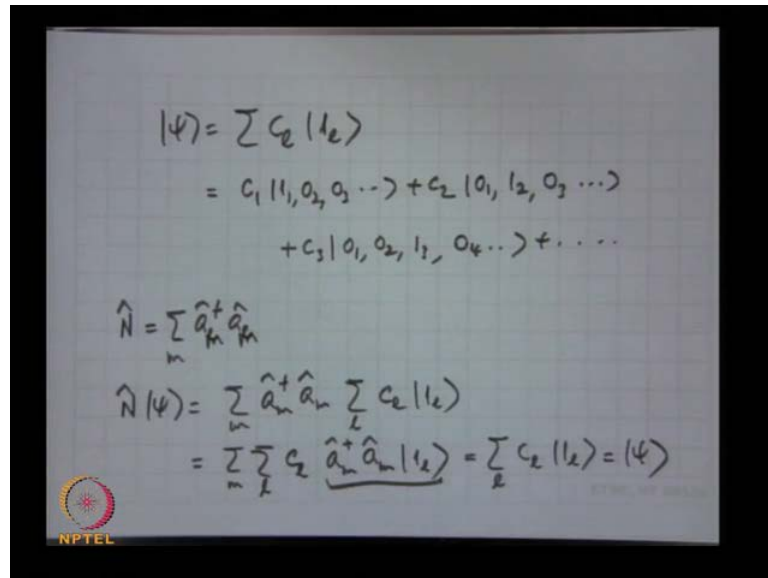 |ψ⟩ = Σ c_ℓ |1_ℓ⟩
= c₁ |1₁, 0₂, 0₃ ··⟩ + c₂ |0₁, 1₂, 0₃ ···⟩
+ c₃ |0₁, 0₂, 1₃, 0₄ ··⟩ + ····
N̂ = Σ_m â_m† â_m
N̂ |ψ⟩ = Σ_m â_m† â_m Σ_ℓ c_ℓ |1_ℓ⟩
= Σ_m Σ_ℓ c_ℓ â_m† â_m |1_ℓ⟩ = Σ_ℓ c_ℓ |1_ℓ⟩ = |ψ⟩
NPTEL